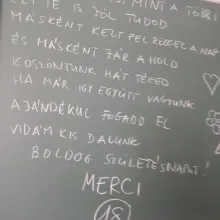 EZT TE IS JÓL TUDOD
MÁSKÉNT KELT FEL REGGEL A NAP
ÉS MÁSKÉNT JÁR A HOLD
KÖSZÖNTÜNK HÁT TÉGED
HA MÁR ÍGY EGYÜTT VAGYUNK
AJÁNDÉKUL FOGADD EL
VIDÁM KIS DALUNK
BOLDOG SZÜLETÉSNAPOT!
MERCI
18